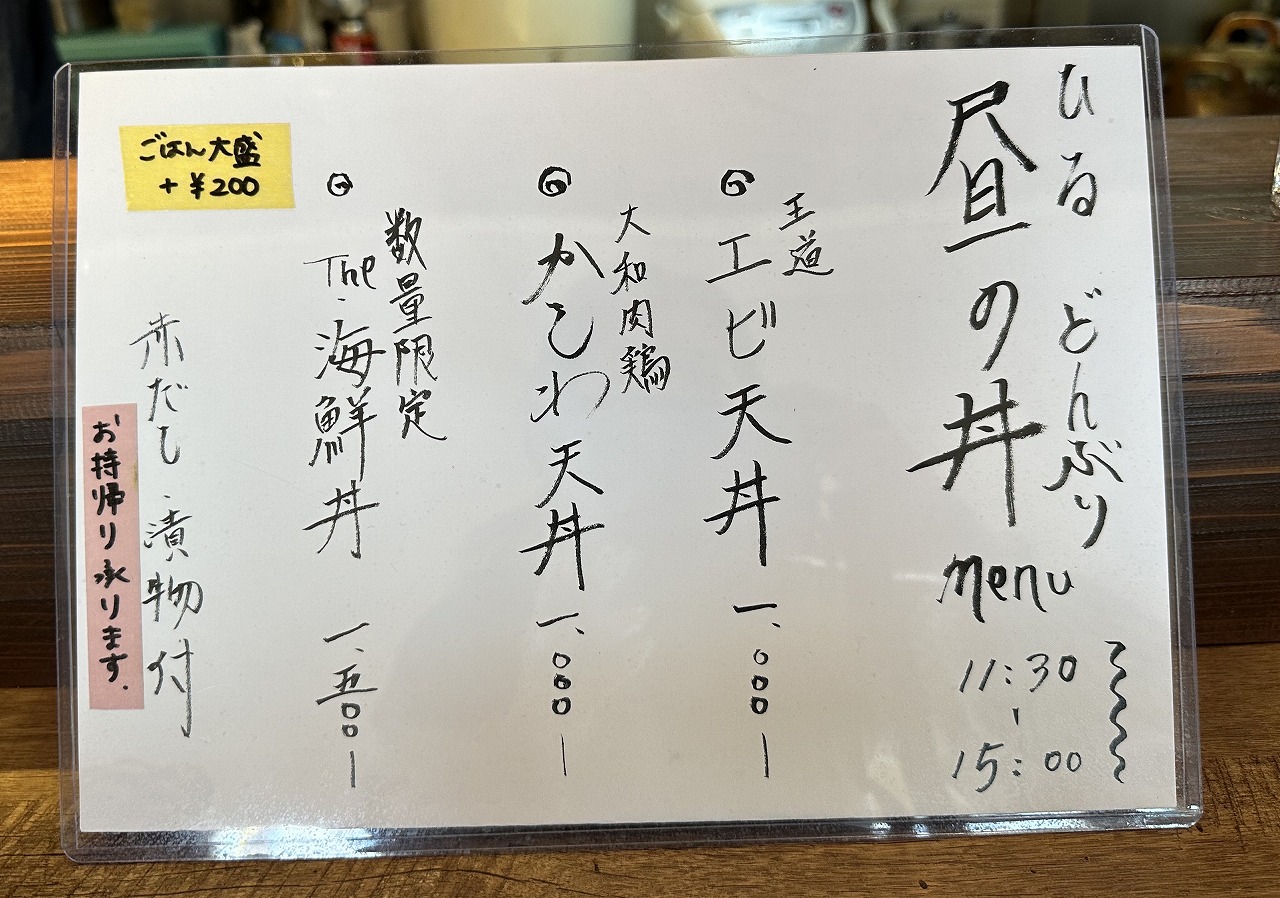 ひる どんぶり
昼の丼 menu
11:30
-
15:00
王道
◎エビ天丼 一、〇〇〇ー
大和肉鶏
◎かしわ天丼 一、〇〇〇ー
数量限定
◎The・海鮮丼 一、五〇〇ー
赤だし・漬物付
ごはん大盛
+¥200
お持帰り承ります.